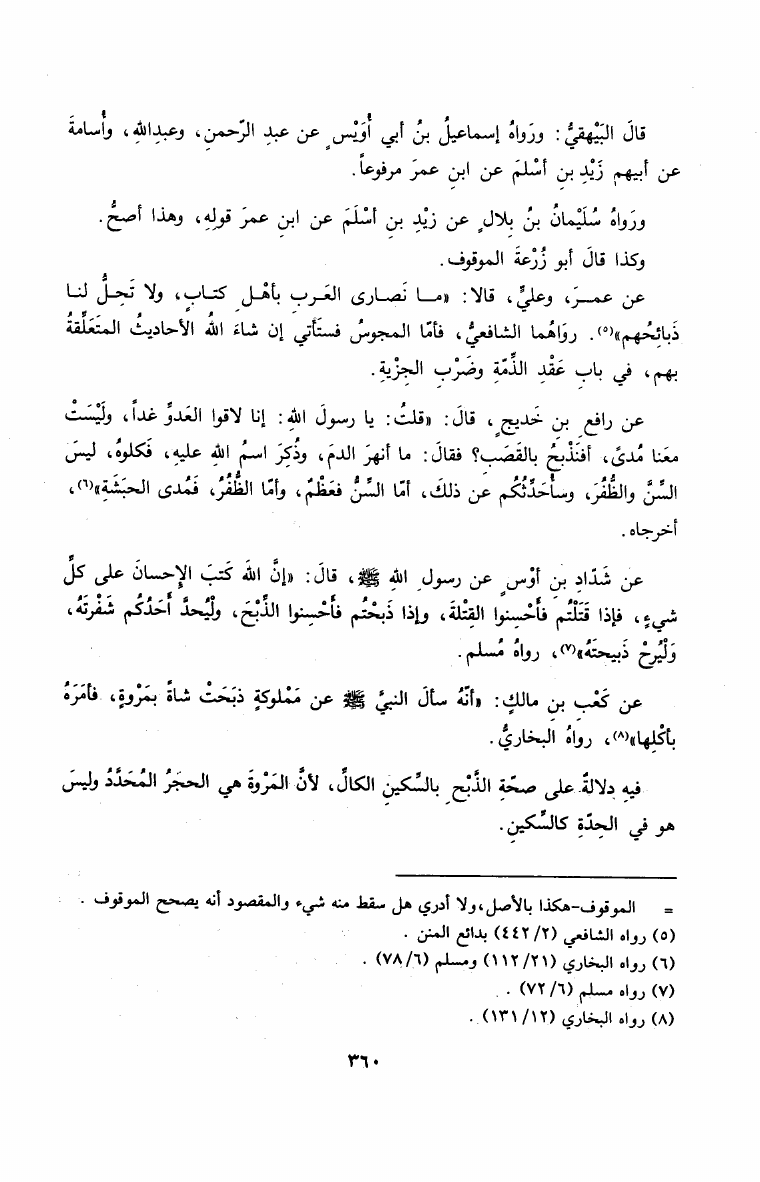 قالَ البَيْهقيُّ : ورَواهُ إسماعيلُ بنُ أبي أُوَيْسٍ عن عبدِ الرّحمنِ ، وعبدِاللهِ ، وأُسامةَ
عن أبيهم زَيْدِ بنِ أسْلمَ عن ابنِ عمرَ مرفوعاً .
ورَواهُ سُلَيْمانُ بنُ بِلالٍ عن زيْدِ بنِ أسْلَمَ عن ابنِ عمرَ قولِهِ ، وهذا أصحُّ .
وكذا قالَ أبو زُرْعةَ الموقوف .
عن عمـرَ ، وعليٍّ ، قالا : «مـا نَصارى العَـربِ بأهْـلِ كتـابٍ ، ولا تَحِـلُّ لنـا
ذَبائِحُهم»(٥) . روَاهُما الشافعيُّ ، فأمّا المجوسُ فستَأتي إن شاءَ اللهُ الأحاديثُ المتَعَلِّقةُ
بهم ، في بابِ عَقْدِ الذِّمّةِ وضَرْبِ الجِزْيةِ .
عن رافعِ بنِ خَديجٍ ، قالَ : «قلتُ : يا رسولَ اللهِ : إنا لاقوا العَدوِّ غداً ، وليْسَتْ
معَنا مُدىً ، أفنَذْبحُ بالقَصَبِ؟ فقالَ : ما أنهرَ الدمَ ، وذُكِرَ اسمُ اللهِ عليهِ ، فَكلوهُ ، ليسَ
السِّنَّ والظُّفُرَ ، وسأُحَدِّثُكُم عن ذلكَ ، أمّا السِّنُّ فعَظْمٌ ، وأمّا الظُّفُرُ ، فَمُدى الحبَشَةِ»(٦) ،
أخرجاه .
عن شَدّادِ بنِ أوْسٍ عن رسولِ اللهِ ﷺ ، قالَ : «إنَّ اللهَ كَتبَ الإحسانَ على كلِّ
شيءٍ ، فإذا قَتَلْتُم فَأحْسِنوا القِتْلةَ ، وإذا ذَبحْتُم فأحْسِنوا الذِّبْحَ ، ولْيُحدَّ أحَدُكُم شَفْرتَهُ ،
وَلْيُرِحْ ذَبيحتَهُ»(٧) ، رواهُ مُسلم .
عن كَعْبِ بنِ مالكٍ : «أنّهُ سألَ النبيَّ ﷺ عن مَمْلوكةٍ ذبَحَتْ شاةً بمَرْوةٍ ، فأمَرَهُ
بأكْلِها»(٨) ، رواهُ البخاريُّ .
فيهِ دِلالةٌ على صحّةِ الذَّبْحِ بالسِّكينِ الكالِّ ، لأنَّ المَرْوةَ هي الحجَرُ المُحَدَّدُ وليسَ
هو في الحِدّةِ كالسِّكينِ .
= الموقوف-هكذا بالأصل ، ولا أدري هل سقط منه شيء والمقصود أنه يصحح الموقوف .
(٥) رواه الشافعي (٢/ ٤٤٢) بدائع المنن .
(٦) رواه البخاري (٢١/ ١١٢) ومسلم (٦/ ٧٨) .
(٧) رواه مسلم (٦/ ٧٢) .
(٨) رواه البخاري (١٢/ ١٣١) .
٣٦٠